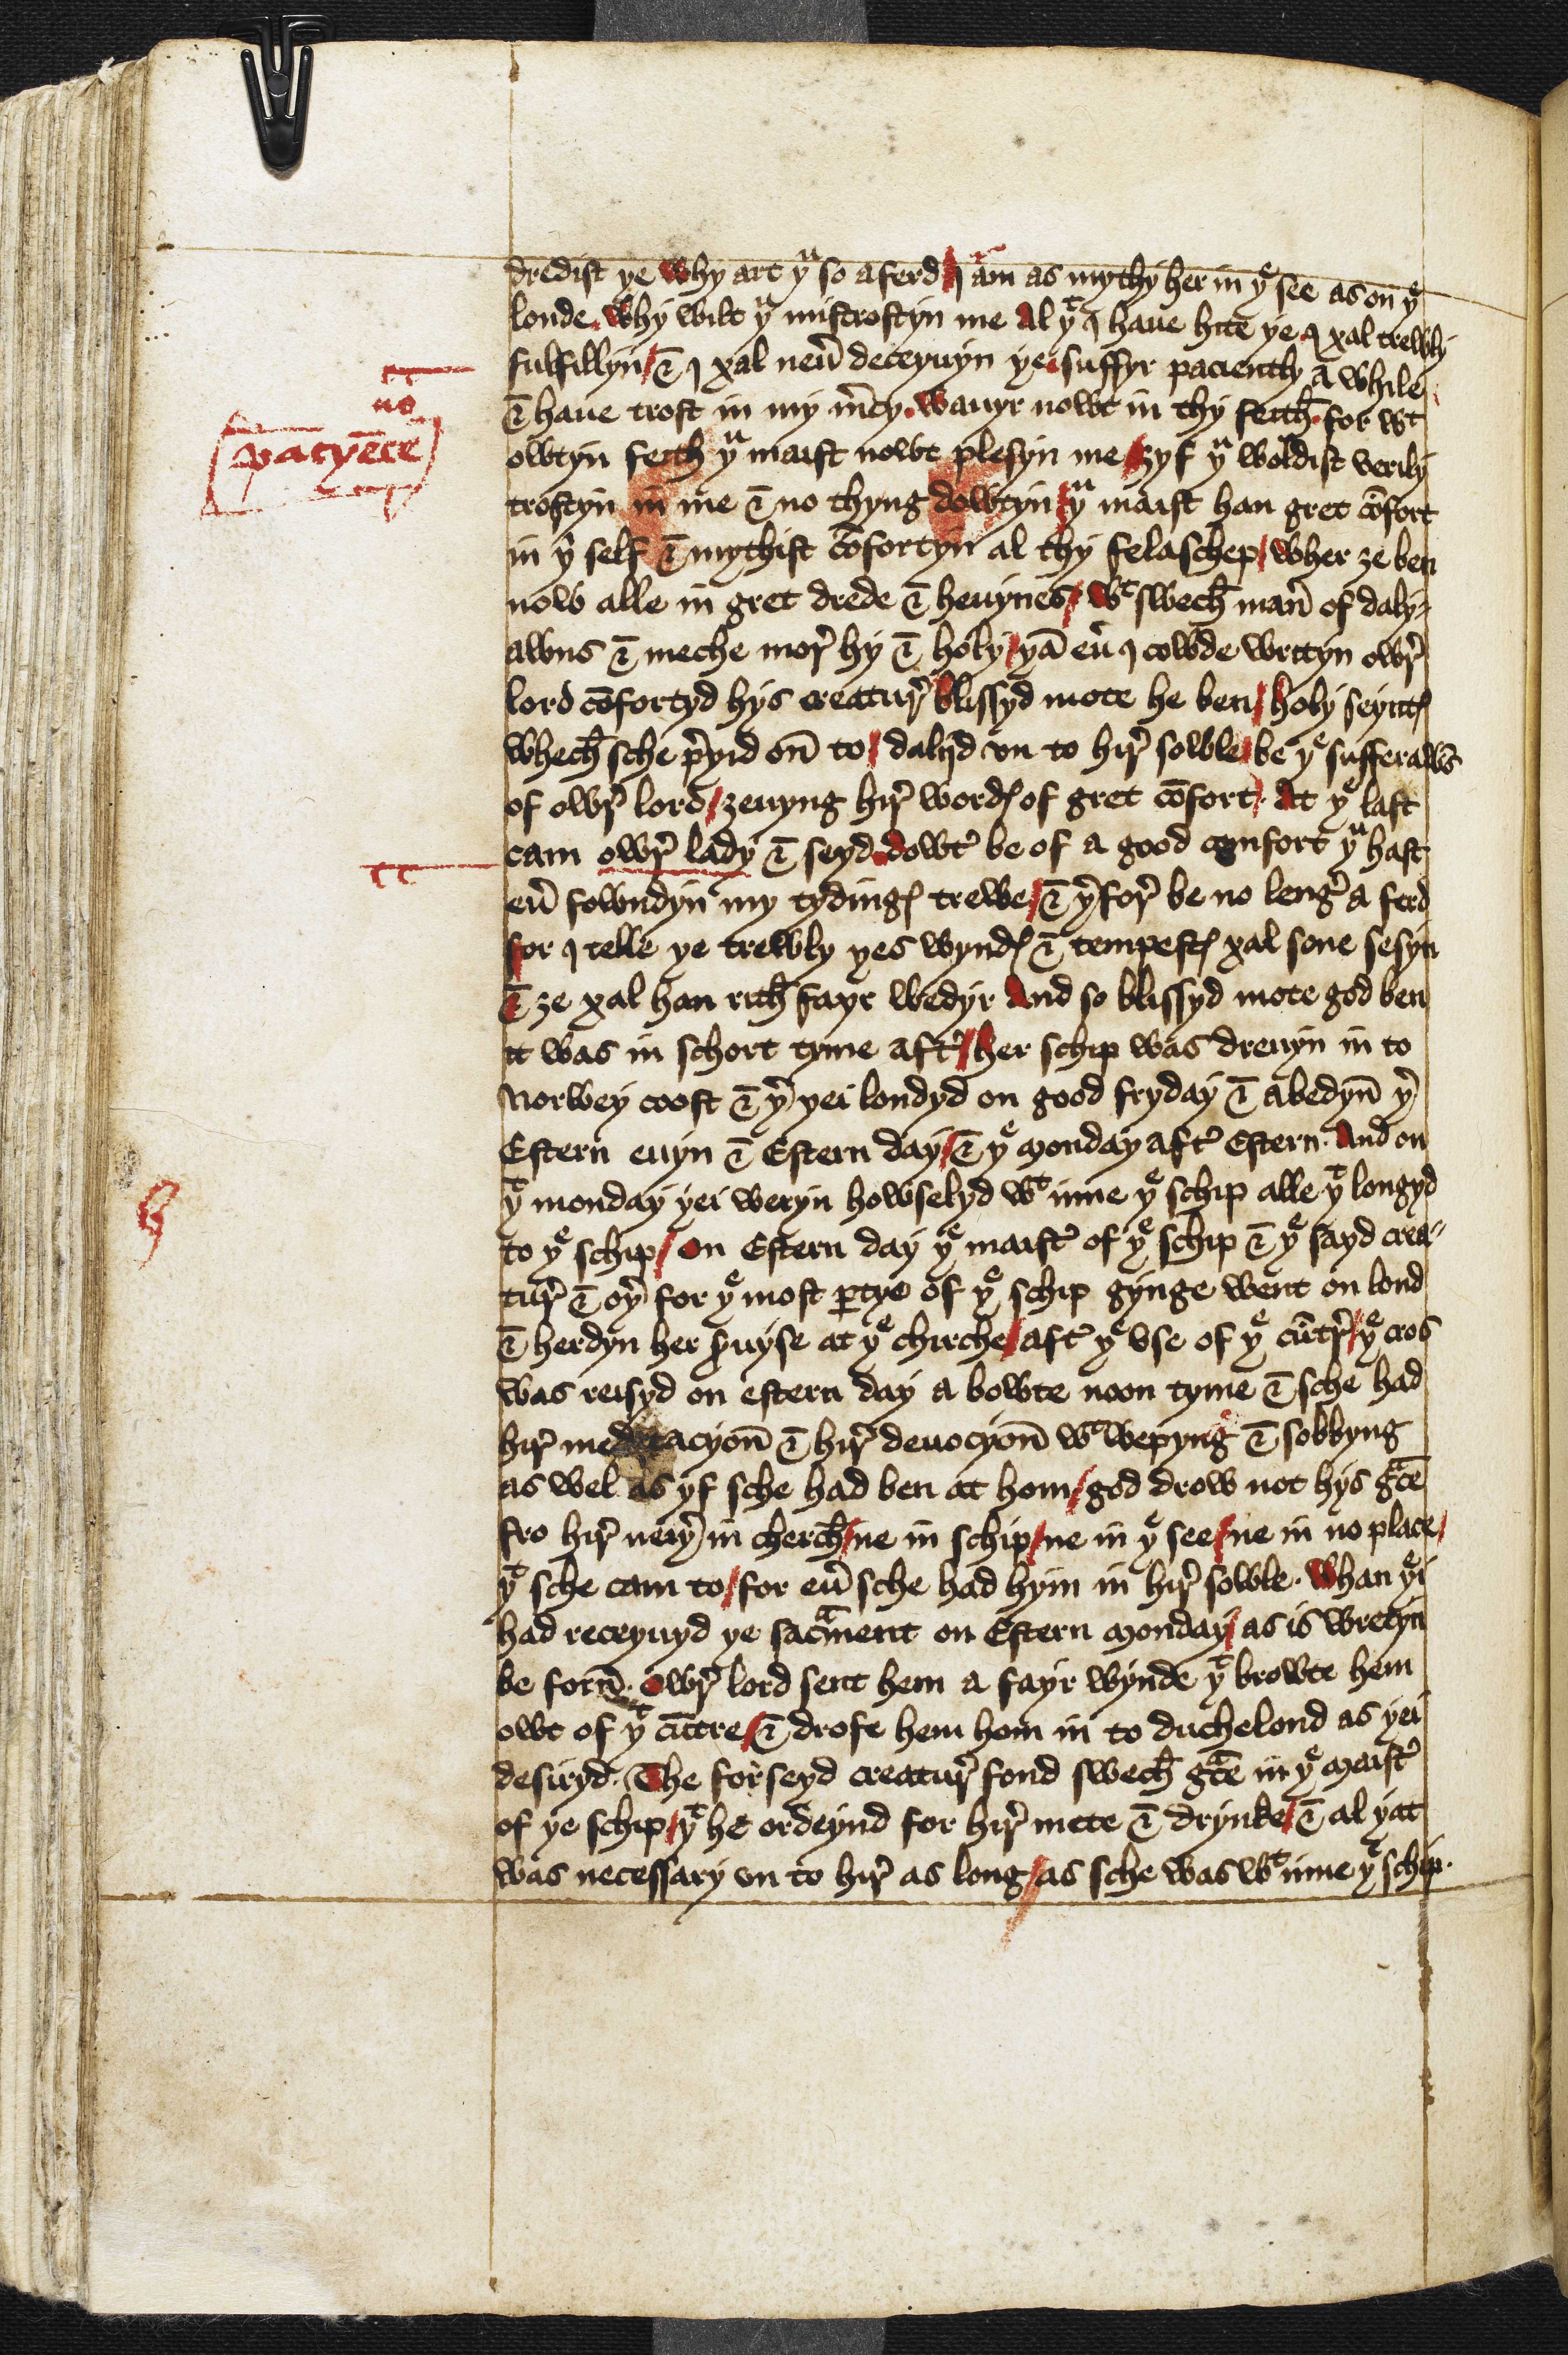 dredist ye why art yu so aferd / I am as mythy her in ye see as on ye
londe. Why wilt yu mistrostyn me Al yt I haue hite ye. I xal trewly
fulfillyn / & I xal neu̅ deceyuyn ye. suffyr paciently a while
& haue trost in my m̅cy. Wauyr nowt in thy feith. for wt
owtyn feith yu maist nowt plesyn me / zyf yu woldist verily
trostyn in me & no thyng dowtyn / yu maist han gret co̅fort
in yi self & mythist co̅fortyn al thy felaschep / wher ze ben
now alle in gret drede & heuynes / Wt swech maner̛ of daly-
awns & meche mor̛ hy & holy / ya̅ eu̅ I cowde writyn owr̛
lord co̅fortyd hys creatur̛ blissyd mote he ben / holy seyntꝭ
whech sche p̛yid on̅ to / dalijd vn to hir̛ sowle / be ye sufferaw̅s
of owr̛ lord / zeuyng hir̛ wordꝭ of gret co̅fort / At ye last
cam owr̛ lady & seyd. dowt̛ be of a good comfort yu hast
eu̅ fowndyn my tydingꝭ trewe / & y̛for̛ be no leng̛ a ferd
for I telle ye trewly yes wyndꝭ & tempestꝭ xal sone sesyn
& ze xal han rith fayr wedyr And so blissyd mote god ben
it was in schort tyme aft̛ / her schip was dreuyn in to
Norwey coost & y̛ yei londyd on good fryday & abedyn̅ y̛
Estern euyn & Estern day / & ye Monday aft̛ Estern. And on
yt monday yei weryn howselyd wt inne ye schip alle yt longyd
to ye schip / On Estern day ye maist̛ of ye schip & ye sayd crea-
tur̛ & oy̛ for ye most ꝑtye of ye schip gynge went on lond
& herdyn her s̛uyse at ye chirche / aft̛ ye vse of ye cu̅tr̛ / ye cros
was reisyd on estern day a bowte noon tyme & sche had
hir̛ meditacyon̅ & hir̛ deuocyon̅ wt wepyng & sobbyng
as wel as yf sche had ben at hom / god drow not hys gᵃce
fro hir̛ neiy̛ in cherch / ne in schip / ne in ye see / ne in no place /
yt sche cam to / for eu̅ sche had hym in hir̛ sowle. Whan yei
had receyuyd ye sacᵃment on Estern Monday / as is wretyn
be forn̅. Owr̛ lord sent hem a fayr wynde yt browte hem
owt of yt cu̅tre / & drofe hem hom in to duchelond as yei
desiryd. The forseyd creatur̛ fond swech gᵃce in ye Maist̛
of ye schip / yt he ordeynd for hir̛ mete & drynke / & al yat
was necessary vn to hir̛ as long / as sche was wt inne ye schip.
pacye̅ce